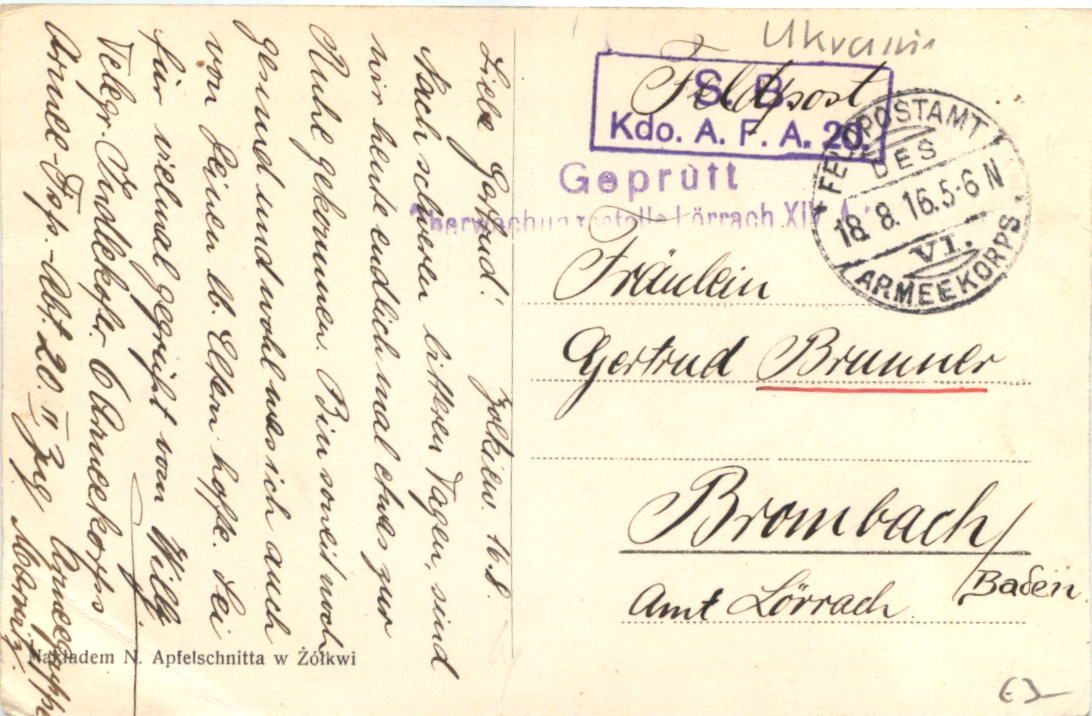 Ukrain
Feldpost
S. B.
Kdo. A. F. A. 20.
Geprüft
Überwachungsstelle Lörrach XIV. A.
FELDPOSTAMT
DES
18. 8. 16. 5-6 N
VI.
ARMEEKORPS
Fräulein
Gertrud Brunner
Brombach/
Baden
Amt Lörrach.
Zolkiew. 16.8.
Liebe Gertrud!
Nach schweren bitteren Tagen, sind
wir heute endlich mal etwas zur
Ruhe gekommen. Bin soweit noch
gesund und wohl was ich auch
von Deinen lb. Eltern hoffe. Sei
für vielmal gegrüßt von Willy
Telegr. 6 Armeekorps
Armee-Fsp.-Abt 20. II Zug
Nakładem N. Apfelschnitta w Żółkwi
63